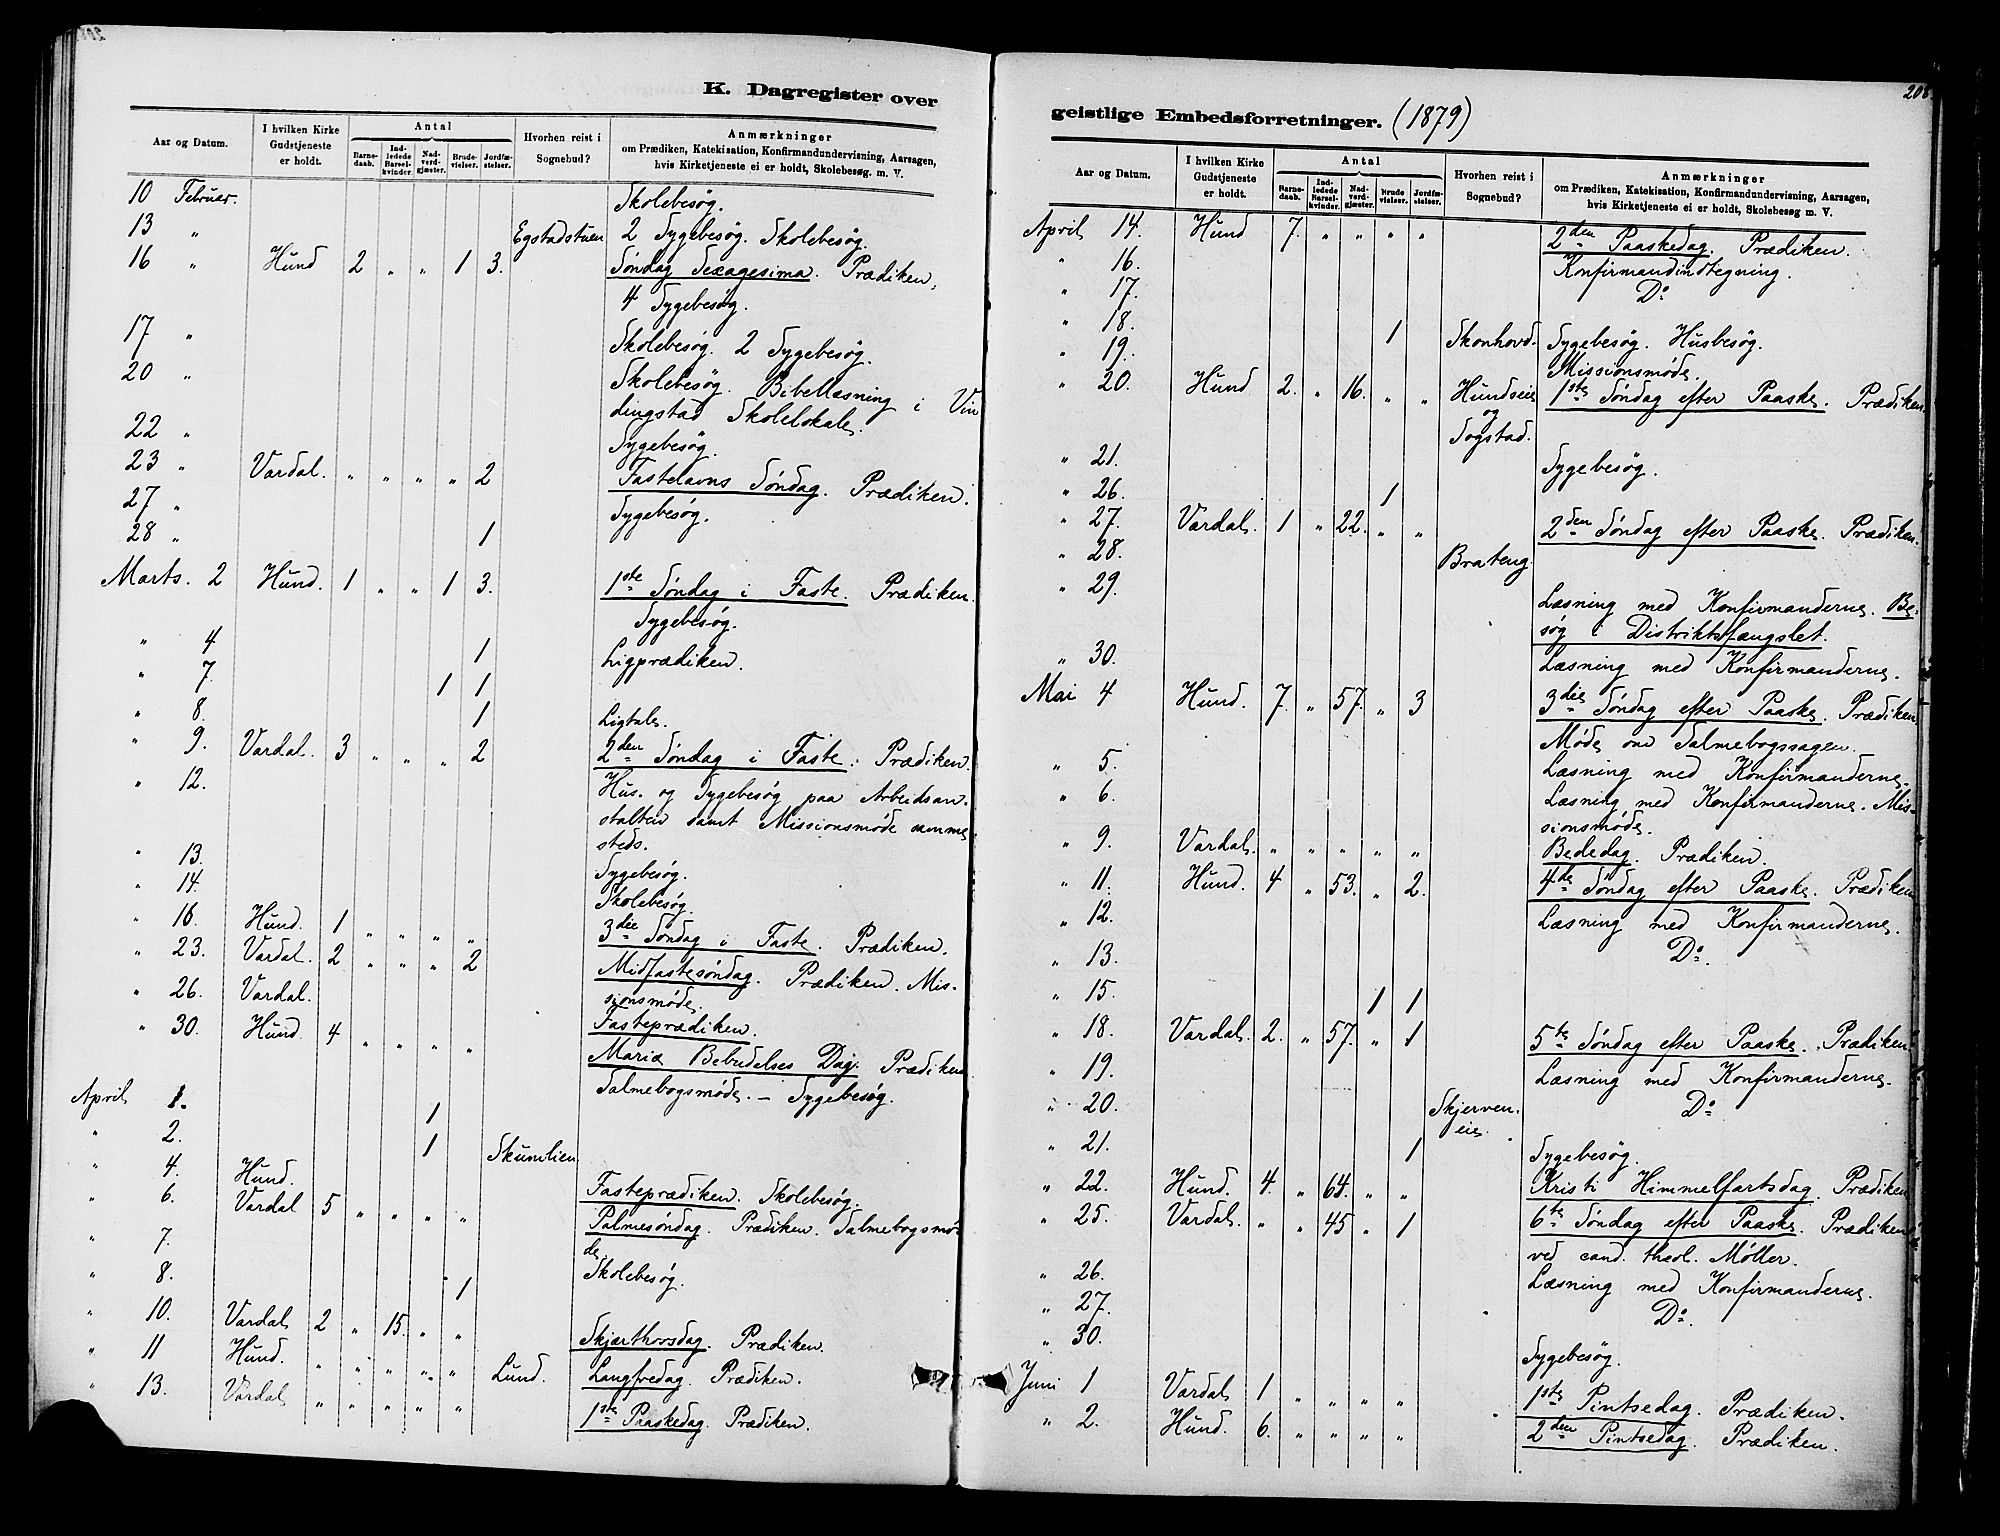 K. Dagregister over
Aar og Datum. I hvilken Kirke Gudstjeneste er holdt. Antal Barne-daab. Ind-ledede Barsel-kvinder. Nad-verd-gjæster. Brude-vielser. Jordfæ-stelser. Hvorhen reist i Sognebud? Anmærkninger
om Prædiken, Katekisation, Konfirmandundervisning, Aarsagen,
hvis Kirketjeneste ei er holdt, Skolebesøg m. V.
10 Februar. Skolebesøg.
13 " Egstadstuen 2 Sygebesøg. Skolebesøg.
16 " Hund 2 " " 1 3. Søndag Sexagesima. Prædiken,
4 Sygebesøg.
17 " Skolebesøg. 2 Sygebesøg.
20 " Skolebesøg. Bibellæsning i Vin
dingstad Skolelokale.
22 " Sygebesøg.
23 " Vardal. " " " " 2 Fastelavns Søndag. Prædiken.
27 " Sygebesøg.
28 " 1
Marts. 2 Hund. 1 " " 1 3. 1ste Søndag i Faste. Prædiken.
Sygebesøg.
" 4 1 Ligprædiken.
" 7. 1 1
" 8. 1 Ligtale.
" 9. Vardal. 3 " " " 2 2den Søndag i Faste. Prædiken.
" 12. Hus- og Sygebesøg paa Arbeidsan-
stalten samt Missionsmøde samme
steds.
" 13. Sygebesøg.
" 14. Skolebesøg.
" 16. Hund. 1 " " " " 3die Søndag i Faste. Prædiken.
" 23. Vardal. 2 " " " 2 Midfastesøndag. Prædiken. Mis-
sionsmøde.
" 26. Vardal. Fasteprædiken.
" 30. Hund. 4 " " " " Mariæ Bebudelses Dag. Prædiken
Salmebogsmøde. – Sygebesøg.
April 1. 1
" 2. 1 Skumlien.
" 4. Hund. Fasteprædiken. Skolebesøg.
" 6. Vardal 5 " " " " Palmesøndag. Prædiken. Salmebogsmø-
de.
" 7. Skolebesøg.
" 8. 1
" 10. Vardal 2 " 15. " " Skjærthorsdag. Prædiken.
" 11 Hund. " " " " " Lund. Langfredag. Prædiken.
" 13. Vardal " " " " " 1ste Paaskedag. Prædiken.
208
geistlige Embedsforretninger. (1879)
Aar og Datum. I hvilken Kirke Gudstjeneste er holdt. Antal Barne-daab. Ind-ledede Barsel-kvinder. Nad-verd-gjæster. Brude vielser. Jordfæ-stelser. Hvorhen reist i Sognebud? Anmærkninger
om Prædiken, Katekisation, Konfirmandundervisning, Aarsagen,
hvis Kirketjeneste ei er holdt, Skolebesøg m. V.
April 14. Hund 7. " " " " 2den Paaskedag. Prædiken.
" 16. Konfirmandindtegning.
" 17. Do
" 18. 1
" 19. Skonhovd. Sygebesøg. Husbesøg.
Missionsmøde.
" 20. Hund 2. " 16. " " Hundseie og Sogstad. 1ste Søndag efter Paaske. Prædiken.
" 21. Sygebesøg.
" 26. 1
" 27. Vardal. 1 " 22. " " 2den Søndag efter Paaske. Prædiken.
" 28. Brateng.
" 29. Læsning med Konfirmanderne. Be-
søg i Distriktsfængslet.
" 30. Læsning med Konfirmanderne.
Mai 4 Hund. 7. " 57. " 3 3die Søndag efter Paaske. Prædiken
Møde om Salmebogssagen.
" 5. Læsning med Konfirmanderne.
" 6. Læsning med Konfirmanderne. Mis-
sionsmøde.
" 9. Vardal. " " " " " Bededag. Prædiken.
" 11. Hund. 4 " 53. " 2. 4de Søndag efter Paaske. Prædiken
" 12. Læsning med Konfirmanderne.
" 13. Do.
" 15. 1 1
" 18. Vardal 2. " 57. " 1 5te Søndag efter Paaske. Prædiken.
" 19. Læsning med Konfirmanderne.
" 20. Skjerven-eie. Do
" 21. 1 Sygebesøg.
" 22. Hund. 4. " 64. " " Kristi Himmelfartsdag. Prædiken
" 25. Vardal. " " 45 " 1 6te Søndag efter Paaske. Prædiken
ved cand. theol. Møller.
" 26. Læsning med Konfirmanderne.
" 27. Do.
" 30. Sygebesøg.
Juni 1 Vardal 1 " " " " 1ste Pintsedag. Prædiken.
" 2. Hund. 6. " " " " 2den Pintsedag. Prædiken.